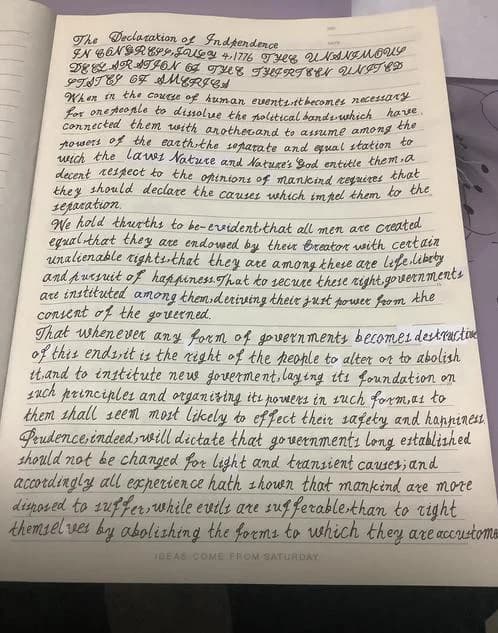 The Declaration of Indpendence
IN CONGRESS,JULY 4,1776 THE UNANIMOUS
DECLARATION OF THE THIRTEEN UNITED
STATES OF AMERICA
When in the course of human events,it becomes necessary
for one people to dissolve the political bands which have
connected them with another,and to assume among the
powers of the earth,the separate and equal station to
wich the laws Nature and Nature's God entitle them,a
decent respect to the opinions of mankind requires that
they should declare the causes which impel them to the
separation.
We hold thurths to be-evident,that all men are created
equal,that they are endowed by their Creator with certain
unalienable rights,that they are among these are life,liberty
and pursuit of happiness.That to secure these right,governments
are instituted among them,deriving their just power from the
consent of the governed.
That whenever any form of governments becomes destructive
of this ends,it is the right of the people to alter or to abolish
it,and to institute new goverment,laying its foundation on
such principles and organizing its powers in such form,as to
them shall seem most likely to effect their safety and happiness.
Prudence,indeed,will dictate that governments long established
should not be changed for light and transient causes;and
accordingly all experience hath shown that mankind are more
disposed to suffer,while evils are sufferable,than to right
themselves by abolishing the forms to which they are accustome
IDEAS COME FROM SATURDAY